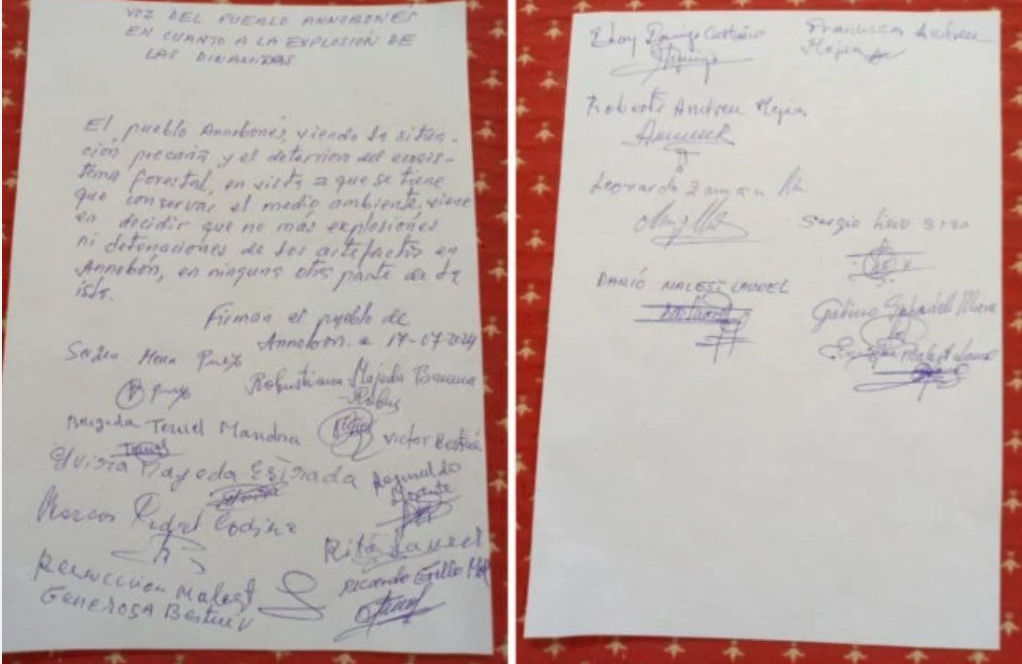 VOZ DEL PUEBLO ANNOBONÉS
EN CUANTO A LA EXPLOSIÓN DE
LAS DINAMITAS
El pueblo Annobonés, viendo la situa-
ción precaria y el deterioro del ecosis-
tema forestal, en vista a que se tiene
que conservar el medio ambiente, viene
en decidir que no más explosiones
ni detonaciones de los artefactos en
Annobón, en ninguna otra parte de la
isla.
Firman el pueblo de
Annobón a 17-07-2024
Sergio Mena
Robustiana Majeda
Robus
Brigida Teruel Mandra
Teruel
Victor Bestué
Elvira Mayeda Estrada
Reginaldo
Marcos Vidal Codina
Rita Lauret
Malest
Ricardo
Generosa Bestué
Eloy Domingo Castaño
Francisca Andreu
Mejia
Roberto Andreu Mejia
Leonardo Zaman
Sergio
DARIÓ MALEST LAUREL
Malest